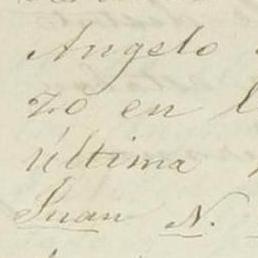 Angelo
zo en l
última
Juan N.